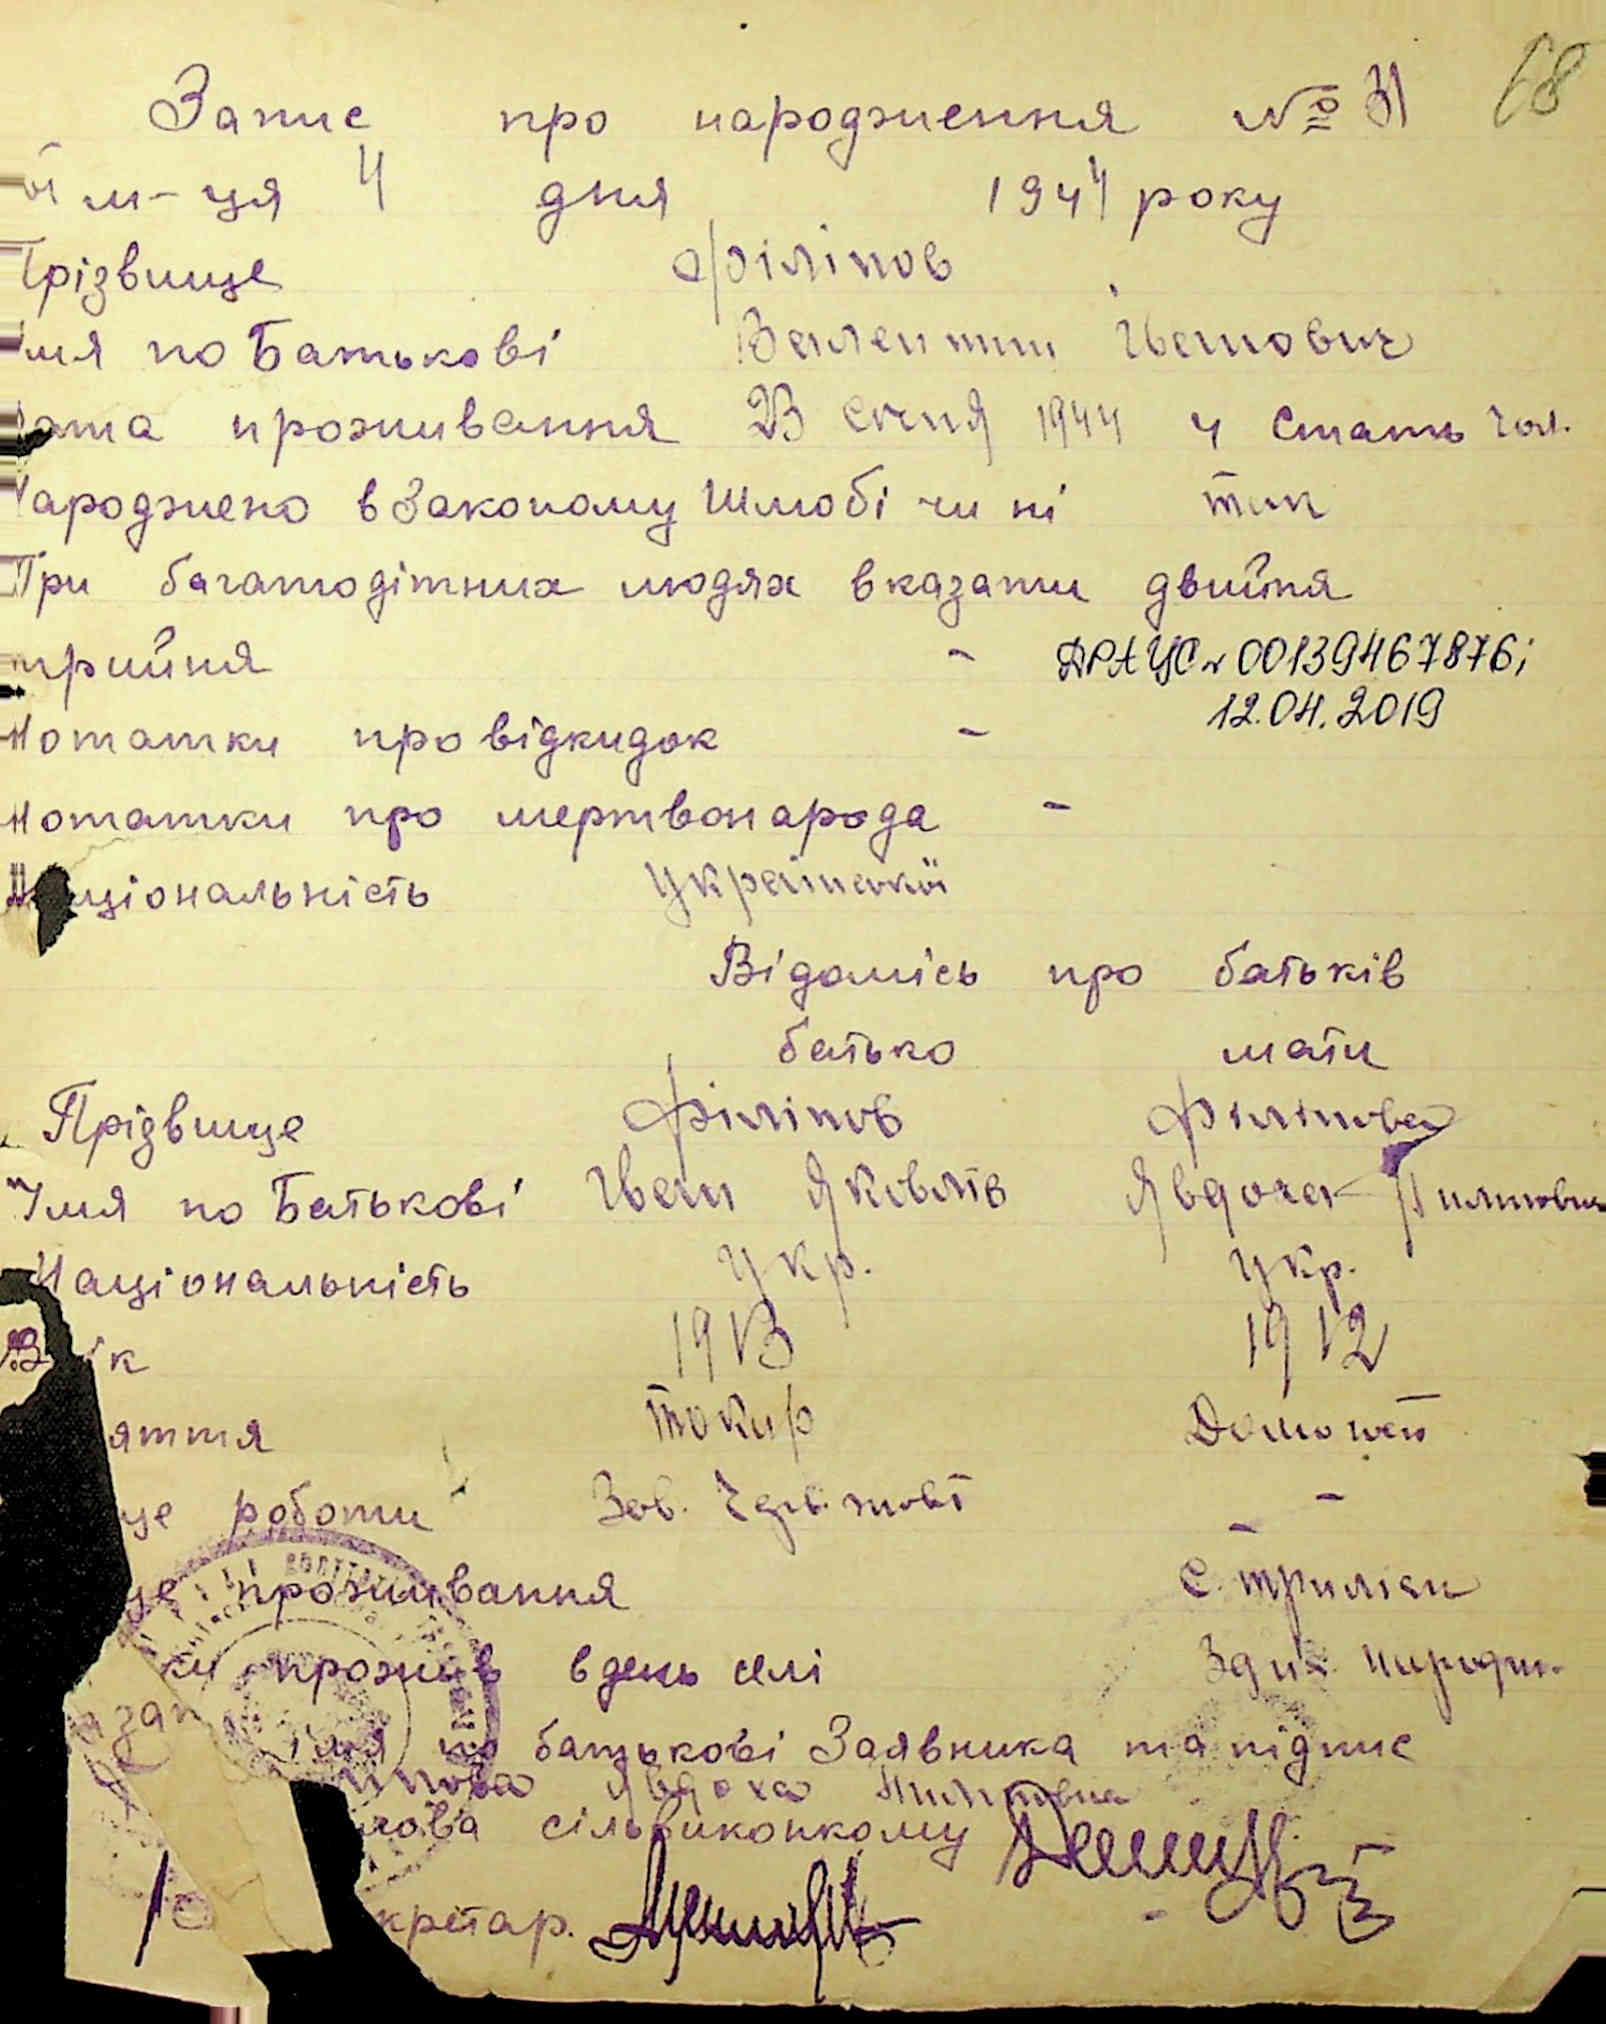 68
Запис про народження № 31
м-ця 4 дня 1944 року
Прізвище Філіпов
Імя по Батькові Валентин Іванович
Дата проживання 23 січня 1944 Стать чол.
Народжено в Законому Шлюбі чи ні так
При багатодітних людях вказати двийня
трийня - ДРАЦСг 00139467876;
12.04.2019
Нотатки про відкидок -
Нотатки про мертвонарода -
Національність Української
Відомісь про батьків
батько мати
Прізвище Філіпов Філіпова
Імя по Батькові Іван Яковлів Явдоха Пилиповна
Національність Укр. Укр.
Вік 1913 1912
яття токир Домогос
це роботи Зав. -
це проживання с. Триліси
ки прожив в день селі Здня народж.
імя по батькові Заявника та підпис
пова Явдоха Пилиповна
лова сільвиконкому
кретар.